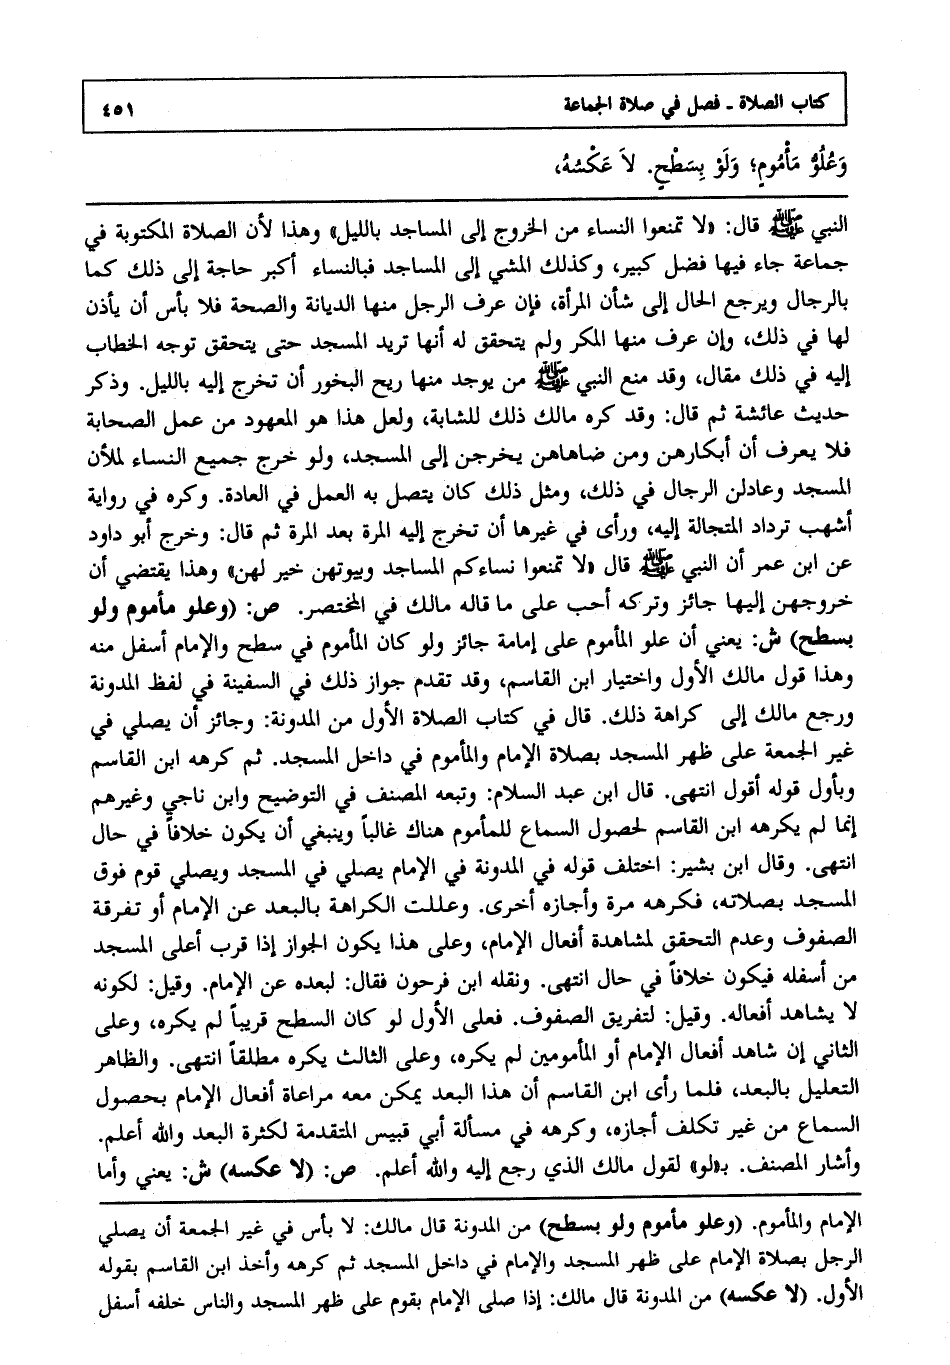 كتاب الصلاة ـ فصل في صلاة الجماعة ٤٥١
وَعُلُوُّ مَأْمُومٍ؛ وَلَوْ بِسَطْحٍ. لاَ عَكْسُهُ،
النبي ﷺ قال: «لا تمنعوا النساء من الخروج إلى المساجد بالليل» وهذا لأن الصلاة المكتوبة في
جماعة جاء فيها فضل كبير، وكذلك المشي إلى المساجد فبالنساء أكبر حاجة إلى ذلك كما
بالرجال ويرجع الحال إلى شأن المرأة، فإن عرف الرجل منها الديانة والصحة فلا بأس أن يأذن
لها في ذلك، وإن عرف منها المكر ولم يتحقق له أنها تريد المسجد حتى يتحقق توجه الخطاب
إليه في ذلك مقال، وقد منع النبي ﷺ من يوجد منها ريح البخور أن تخرج إليه بالليل. وذكر
حديث عائشة ثم قال: وقد كره مالك ذلك للشابة، ولعل هذا هو المعهود من عمل الصحابة
فلا يعرف أن أبكارهن ومن ضاهاهن يخرجن إلى المسجد، ولو خرج جميع النساء لملأن
المسجد وعادلن الرجال في ذلك، ومثل ذلك كان يتصل به العمل في العادة. وكره في رواية
أشهب ترداد المتجالة إليه، ورأى في غيرها أن تخرج إليه المرة بعد المرة ثم قال: وخرج أبو داود
عن ابن عمر أن النبي ﷺ قال «لا تمنعوا نساءكم المساجد وبيوتهن خير لهن» وهذا يقتضي أن
خروجهن إليها جائز وتركه أحب على ما قاله مالك في المختصر. ص: (وعلو مأموم ولو
بسطح) ش: يعني أن علو المأموم على إمامة جائز ولو كان المأموم في سطح والإمام أسفل منه
وهذا قول مالك الأول واختيار ابن القاسم، وقد تقدم جواز ذلك في السفينة في لفظ المدونة
ورجع مالك إلى كراهة ذلك. قال في كتاب الصلاة الأول من المدونة: وجائز أن يصلي في
غير الجمعة على ظهر المسجد بصلاة الإمام والمأموم في داخل المسجد. ثم كرهه ابن القاسم
وبأول قوله أقول انتهى. قال ابن عبد السلام: وتبعه المصنف في التوضيح وابن ناجي وغيرهم
إنما لم يكرهه ابن القاسم لحصول السماع للمأموم هناك غالباً وينبغي أن يكون خلافاً في حال
انتهى. وقال ابن بشير: اختلف قوله في المدونة في الإمام يصلي في المسجد ويصلي قوم فوق
المسجد بصلاته، فكرهه مرة وأجازه أخرى. وعللت الكراهة بالبعد عن الإمام أو تفرقة
الصفوف وعدم التحقق لمشاهدة أفعال الإمام، وعلى هذا يكون الجواز إذا قرب أعلى المسجد
من أسفله فيكون خلافاً في حال انتهى. ونقله ابن فرحون فقال: لبعده عن الإمام. وقيل: لكونه
لا يشاهد أفعاله. وقيل: لتفريق الصفوف. فعلى الأول لو كان السطح قريباً لم يكره، وعلى
الثاني إن شاهد أفعال الإمام أو المأمومين لم يكره، وعلى الثالث يكره مطلقاً انتهى. والظاهر
التعليل بالبعد، فلما رأى ابن القاسم أن هذا البعد يمكن معه مراعاة أفعال الإمام بحصول
السماع من غير تكلف أجازه، وكرهه في مسألة أبي قبيس المتقدمة لكثرة البعد والله أعلم.
وأشار المصنف. بـ«لو» لقول مالك الذي رجع إليه والله أعلم. ص: (لا عكسه) ش: يعني وأما
الإمام والمأموم. (وعلو مأموم ولو بسطح) من المدونة قال مالك: لا بأس في غير الجمعة أن يصلي
الرجل بصلاة الإمام على ظهر المسجد والإمام في داخل المسجد ثم كرهه وأخذ ابن القاسم بقوله
الأول. (لا عكسه) من المدونة قال مالك: إذا صلى الإمام بقوم على ظهر المسجد والناس خلفه أسفل